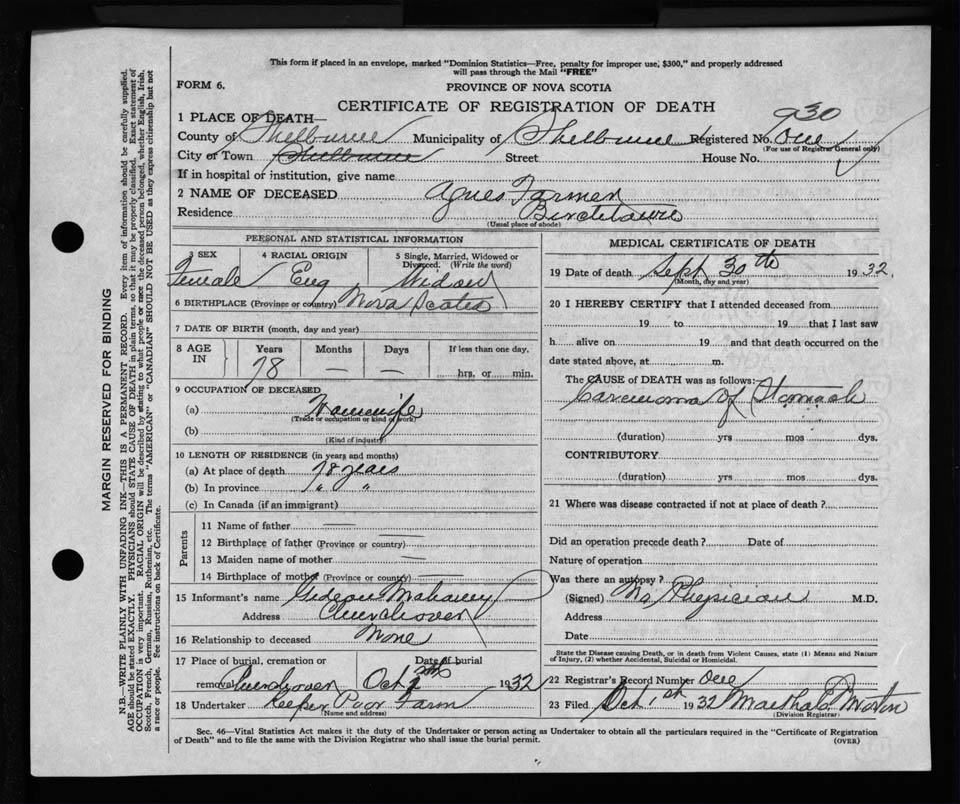 This form if placed in an envelope, marked "Dominion Statistics—Free, penalty for improper use, $300," and properly addressed
will pass through the Mail "FREE"
FORM 6.
PROVINCE OF NOVA SCOTIA
CERTIFICATE OF REGISTRATION OF DEATH
930
1 PLACE OF DEATH—
County of Shelburne Municipality of Shelburne Registered No. One
(For use of Registrar General only)
City or Town Shelburne Street House No.
If in hospital or institution, give name
2 NAME OF DECEASED Agnes Farmer
Residence Birchtown
(Usual place of abode)
PERSONAL AND STATISTICAL INFORMATION
3 SEX 4 RACIAL ORIGIN 5 Single, Married, Widowed or
Divorced. (Write the word)
Female Eng Widow
6 BIRTHPLACE (Province or country) Nova Scotia
7 DATE OF BIRTH (month, day and year)
8 AGE IN Years Months Days If less than one day.
78 — — hrs. or min.
9 OCCUPATION OF DECEASED
(a) Housewife
(Trade or occupation or kind of work)
(b)
(Kind of industry)
10 LENGTH OF RESIDENCE (in years and months)
(a) At place of death 78 years
(b) In province " "
(c) In Canada (if an immigrant)
Parents
11 Name of father —
12 Birthplace of father (Province or country) —
13 Maiden name of mother —
14 Birthplace of mother (Province or country) —
15 Informant's name Gideon Mahaney
Address Churchover
16 Relationship to deceased None
17 Place of burial, cremation or Date of burial
removal Churchover Oct 1932
18 Undertaker Keeper Poor Farm
(Name and address)
MEDICAL CERTIFICATE OF DEATH
19 Date of death Sept 30th 1932.
(Month, day and year)
20 I HEREBY CERTIFY that I attended deceased from
19 to 19 that I last saw
h alive on 19 and that death occurred on the
date stated above, at m.
The CAUSE of DEATH was as follows:
Carcinoma of Stomach
(duration) yrs mos dys.
CONTRIBUTORY
(duration) yrs mos dys.
21 Where was disease contracted if not at place of death?
Did an operation precede death? Date of
Nature of operation
Was there an autopsy?
(Signed) No Physician M.D.
Address
Date
State the Disease causing Death, or in death from Violent Causes, state (1) Means and Nature
of Injury, (2) whether Accidental, Suicidal or Homicidal.
22 Registrar's Record Number One
23 Filed Oct 1st 1932 Martha E Morton
(Division Registrar)
Sec. 46—Vital Statistics Act makes it the duty of the Undertaker or person acting as Undertaker to obtain all the particulars required in the "Certificate of Registration
of Death" and to file the same with the Division Registrar who shall issue the burial permit.
(OVER)
MARGIN RESERVED FOR BINDING
N.B.—WRITE PLAINLY WITH UNFADING INK—THIS IS A PERMANENT RECORD. Every item of information should be carefully supplied.
AGE should be stated EXACTLY. PHYSICIANS should STATE CAUSE OF DEATH in plain terms, so that it may be properly classified. Exact statement of
OCCUPATION is very important. RACIAL ORIGIN will be described by stating to what people or race the deceased person belonged, whether English, Irish,
Scotch, French, German, Russian, Ruthenian, etc. The terms "AMERICAN" or "CANADIAN" SHOULD NOT BE USED as they express citizenship but not
a race or people. See instructions on back of Certificate.